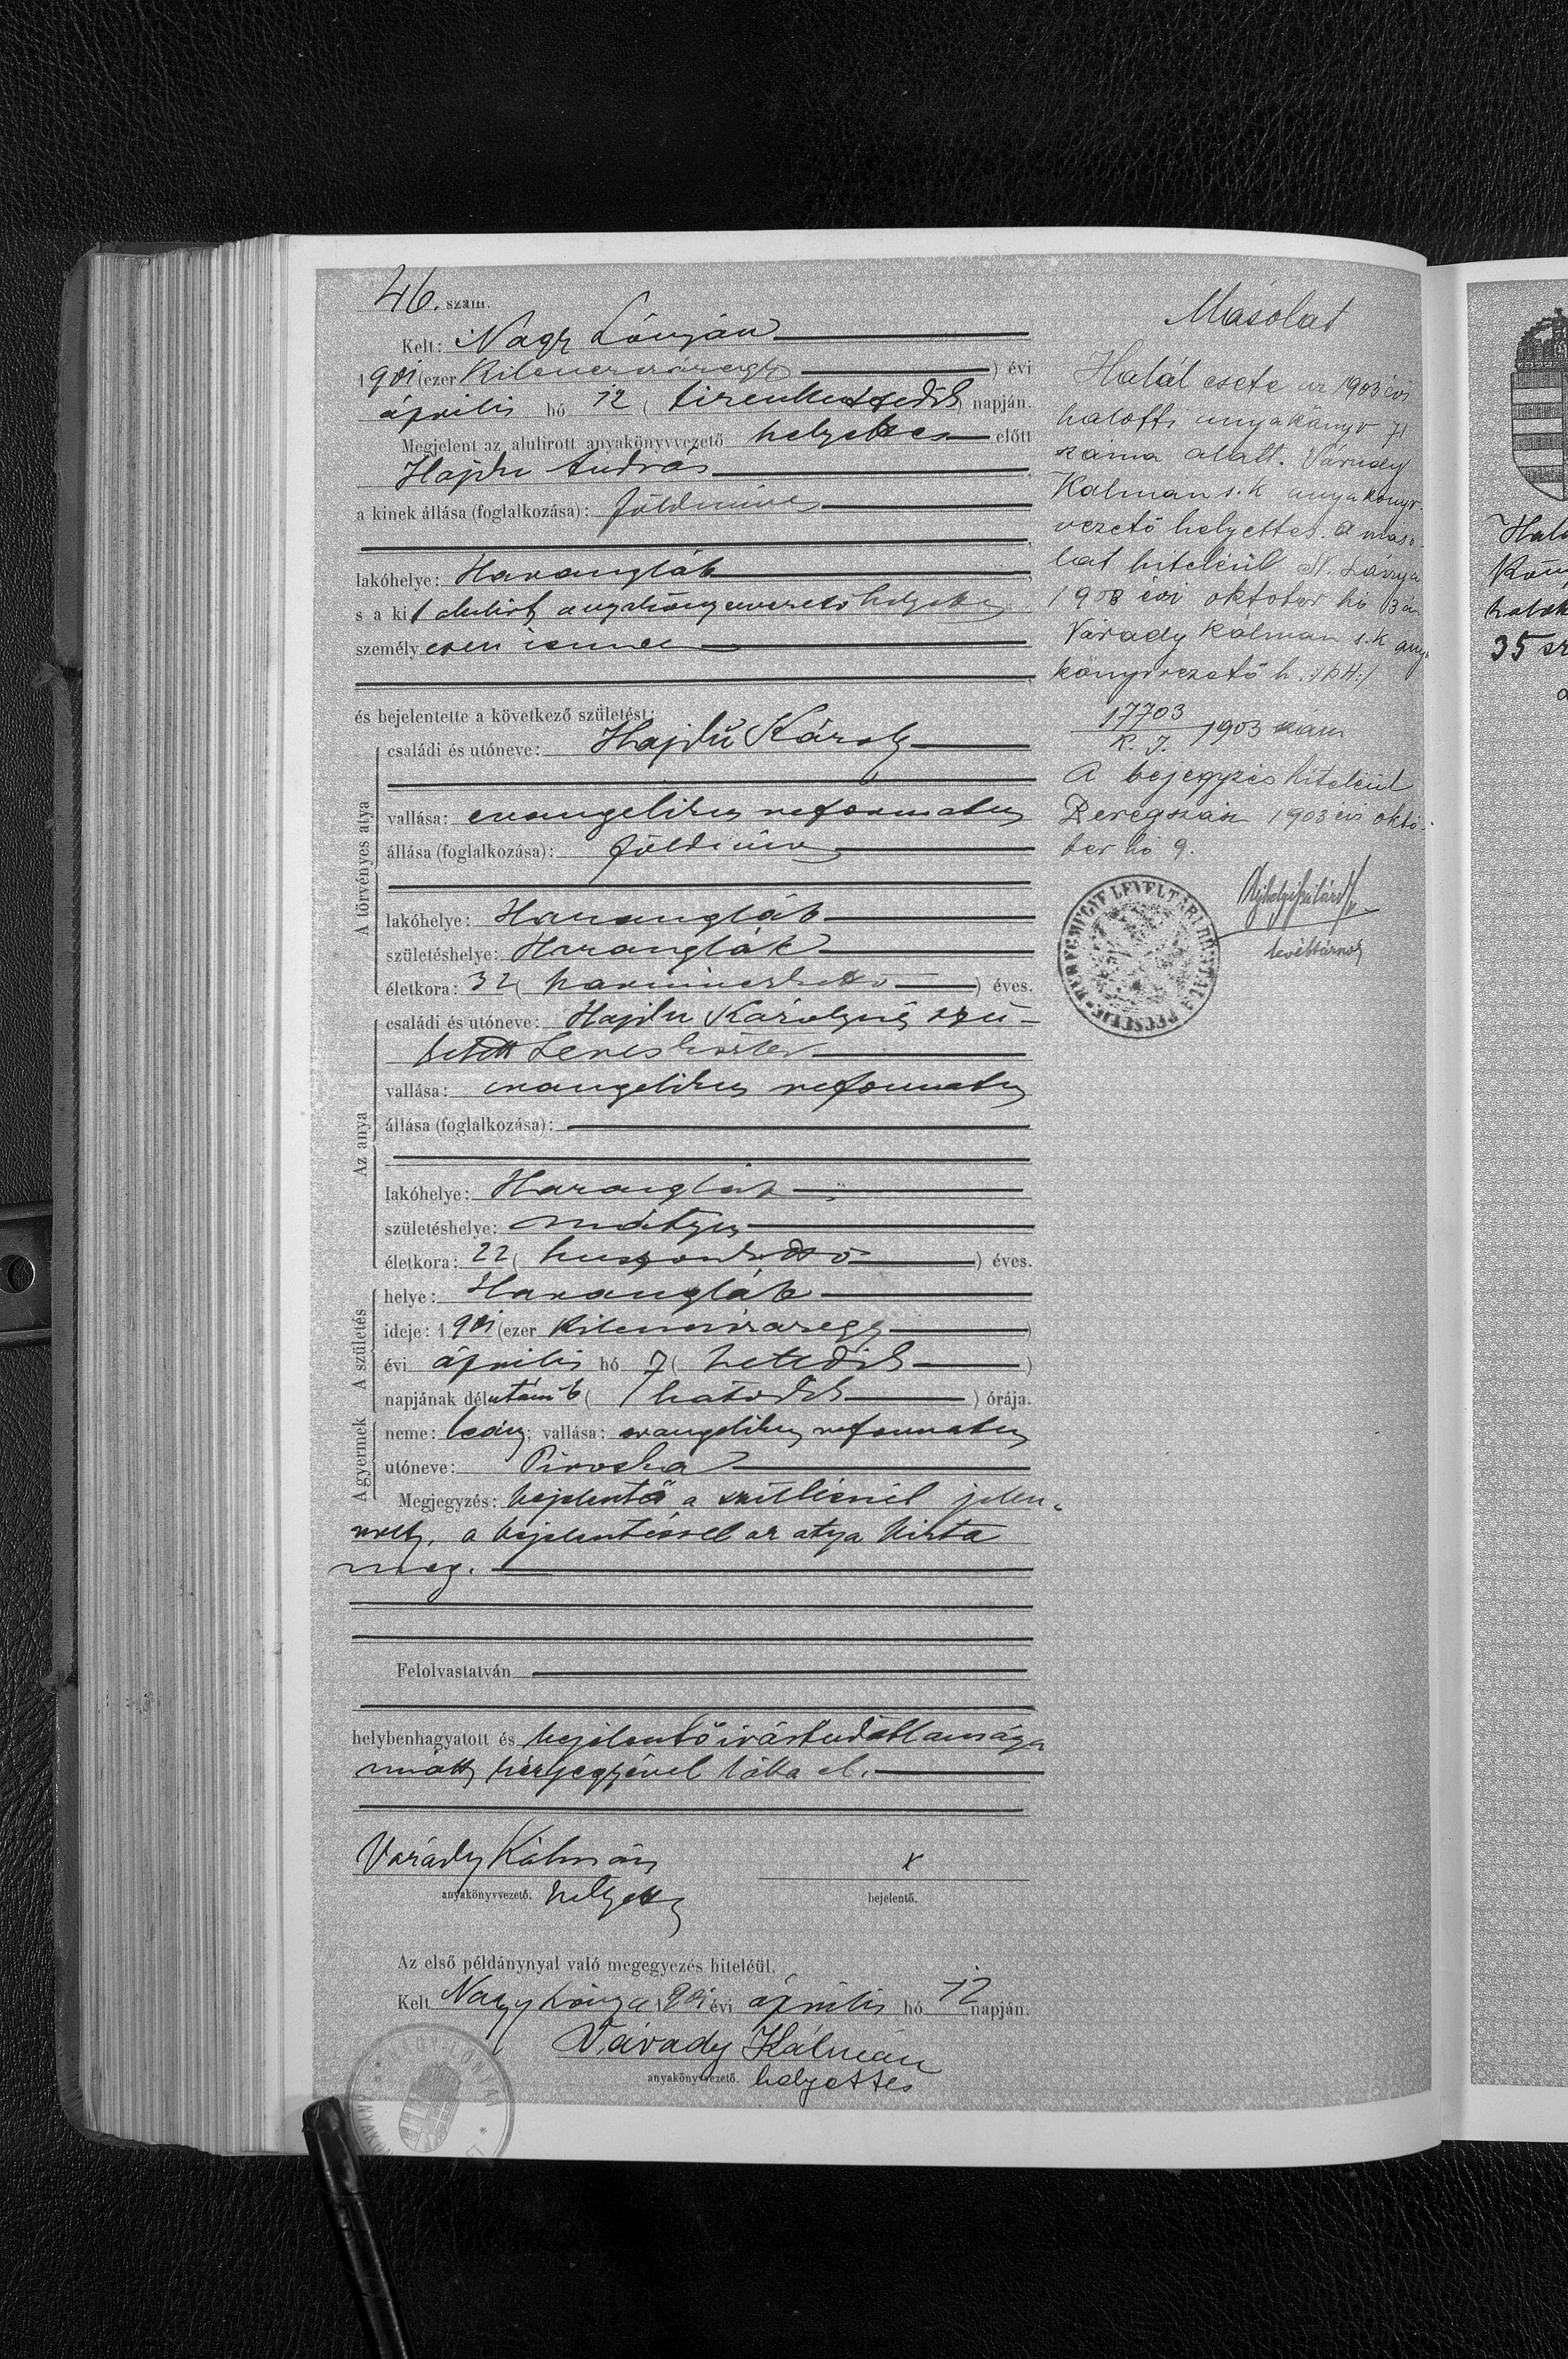 46. szám.
Kelt: Nagy Lónyán
1901 (ezer kilenczszázegy) évi
április hó 12 (tizenkettedik) napján.
Megjelent az alulirott anyakönyvvezető helyettes előtt
Hajdu András
a kinek állása (foglalkozása): földműves
lakóhelye: Harangláb
s a kit alulirt anyakönyvvezető helyettes
személyesen ismer
és bejelentette a következő születést:
A törvényes atya
családi és utóneve: Hajdú Károly
vallása: evangelikus reformatus
állása (foglalkozása): földműves
lakóhelye: Harangláb
születéshelye: Harangláb
életkora: 32 (harminczkettő) éves.
Az anya
családi és utóneve: Hajdu Károlyné szü-
letett Eszter
vallása: evangelikus reformatus
állása (foglalkozása):
lakóhelye: Harangláb
születéshelye: Mátyus
életkora: 22 (huszonkettő) éves.
A születés
helye: Harangláb
ideje: 1901 (ezer kilenczszázegy)
évi április hó 7 (hetedik)
napjának délután 6 (hatodik) órája.
A gyermek
neme: leány; vallása: evangelikus reformatus
utóneve: Piroska
Megjegyzés: bejelentő a szülésnél jelen
volt, a bejelentéssel az atya bizta
meg.
Felolvastatván
helybenhagyatott és bejelentő irástudatlansága
miatt kézjegyével látta el.
Várady Kálmán x
anyakönyvvezető. helyettes bejelentő.
Az első példánynyal való megegyezés hiteléül.
Kelt Nagy Lónya 1901 évi április hó 12 napján.
Várady Kálmán
anyakönyvvezető. helyettes
NAGY-LÓNYAI
Másolat
Halál esete az 1903 évi
halotti anyakönyv 71
száma alatt. Várady
Kálmán s.k anyakönyv-
vezető helyettes. A máso-
lat hiteléül N. Lónya
1903 évi október hó 3 án
Várady Kálmán s.k anya
könyvvezető h. /:P.H:/
17703
K. J. 1903 szám
A bejegyzés hiteléül
Beregszász 1903 évi októ-
ber hó 9.
levéltárnok
BEREGMEGYE LEVÉLTÁRI HIVATAL PECSÉTJE
35 sz